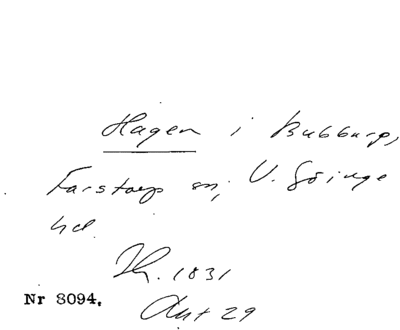 Hagen i Bubbarp,
Farstorp sn, V. Göinge
hd.
Th. 1831
Ant 29
Nr 8094.